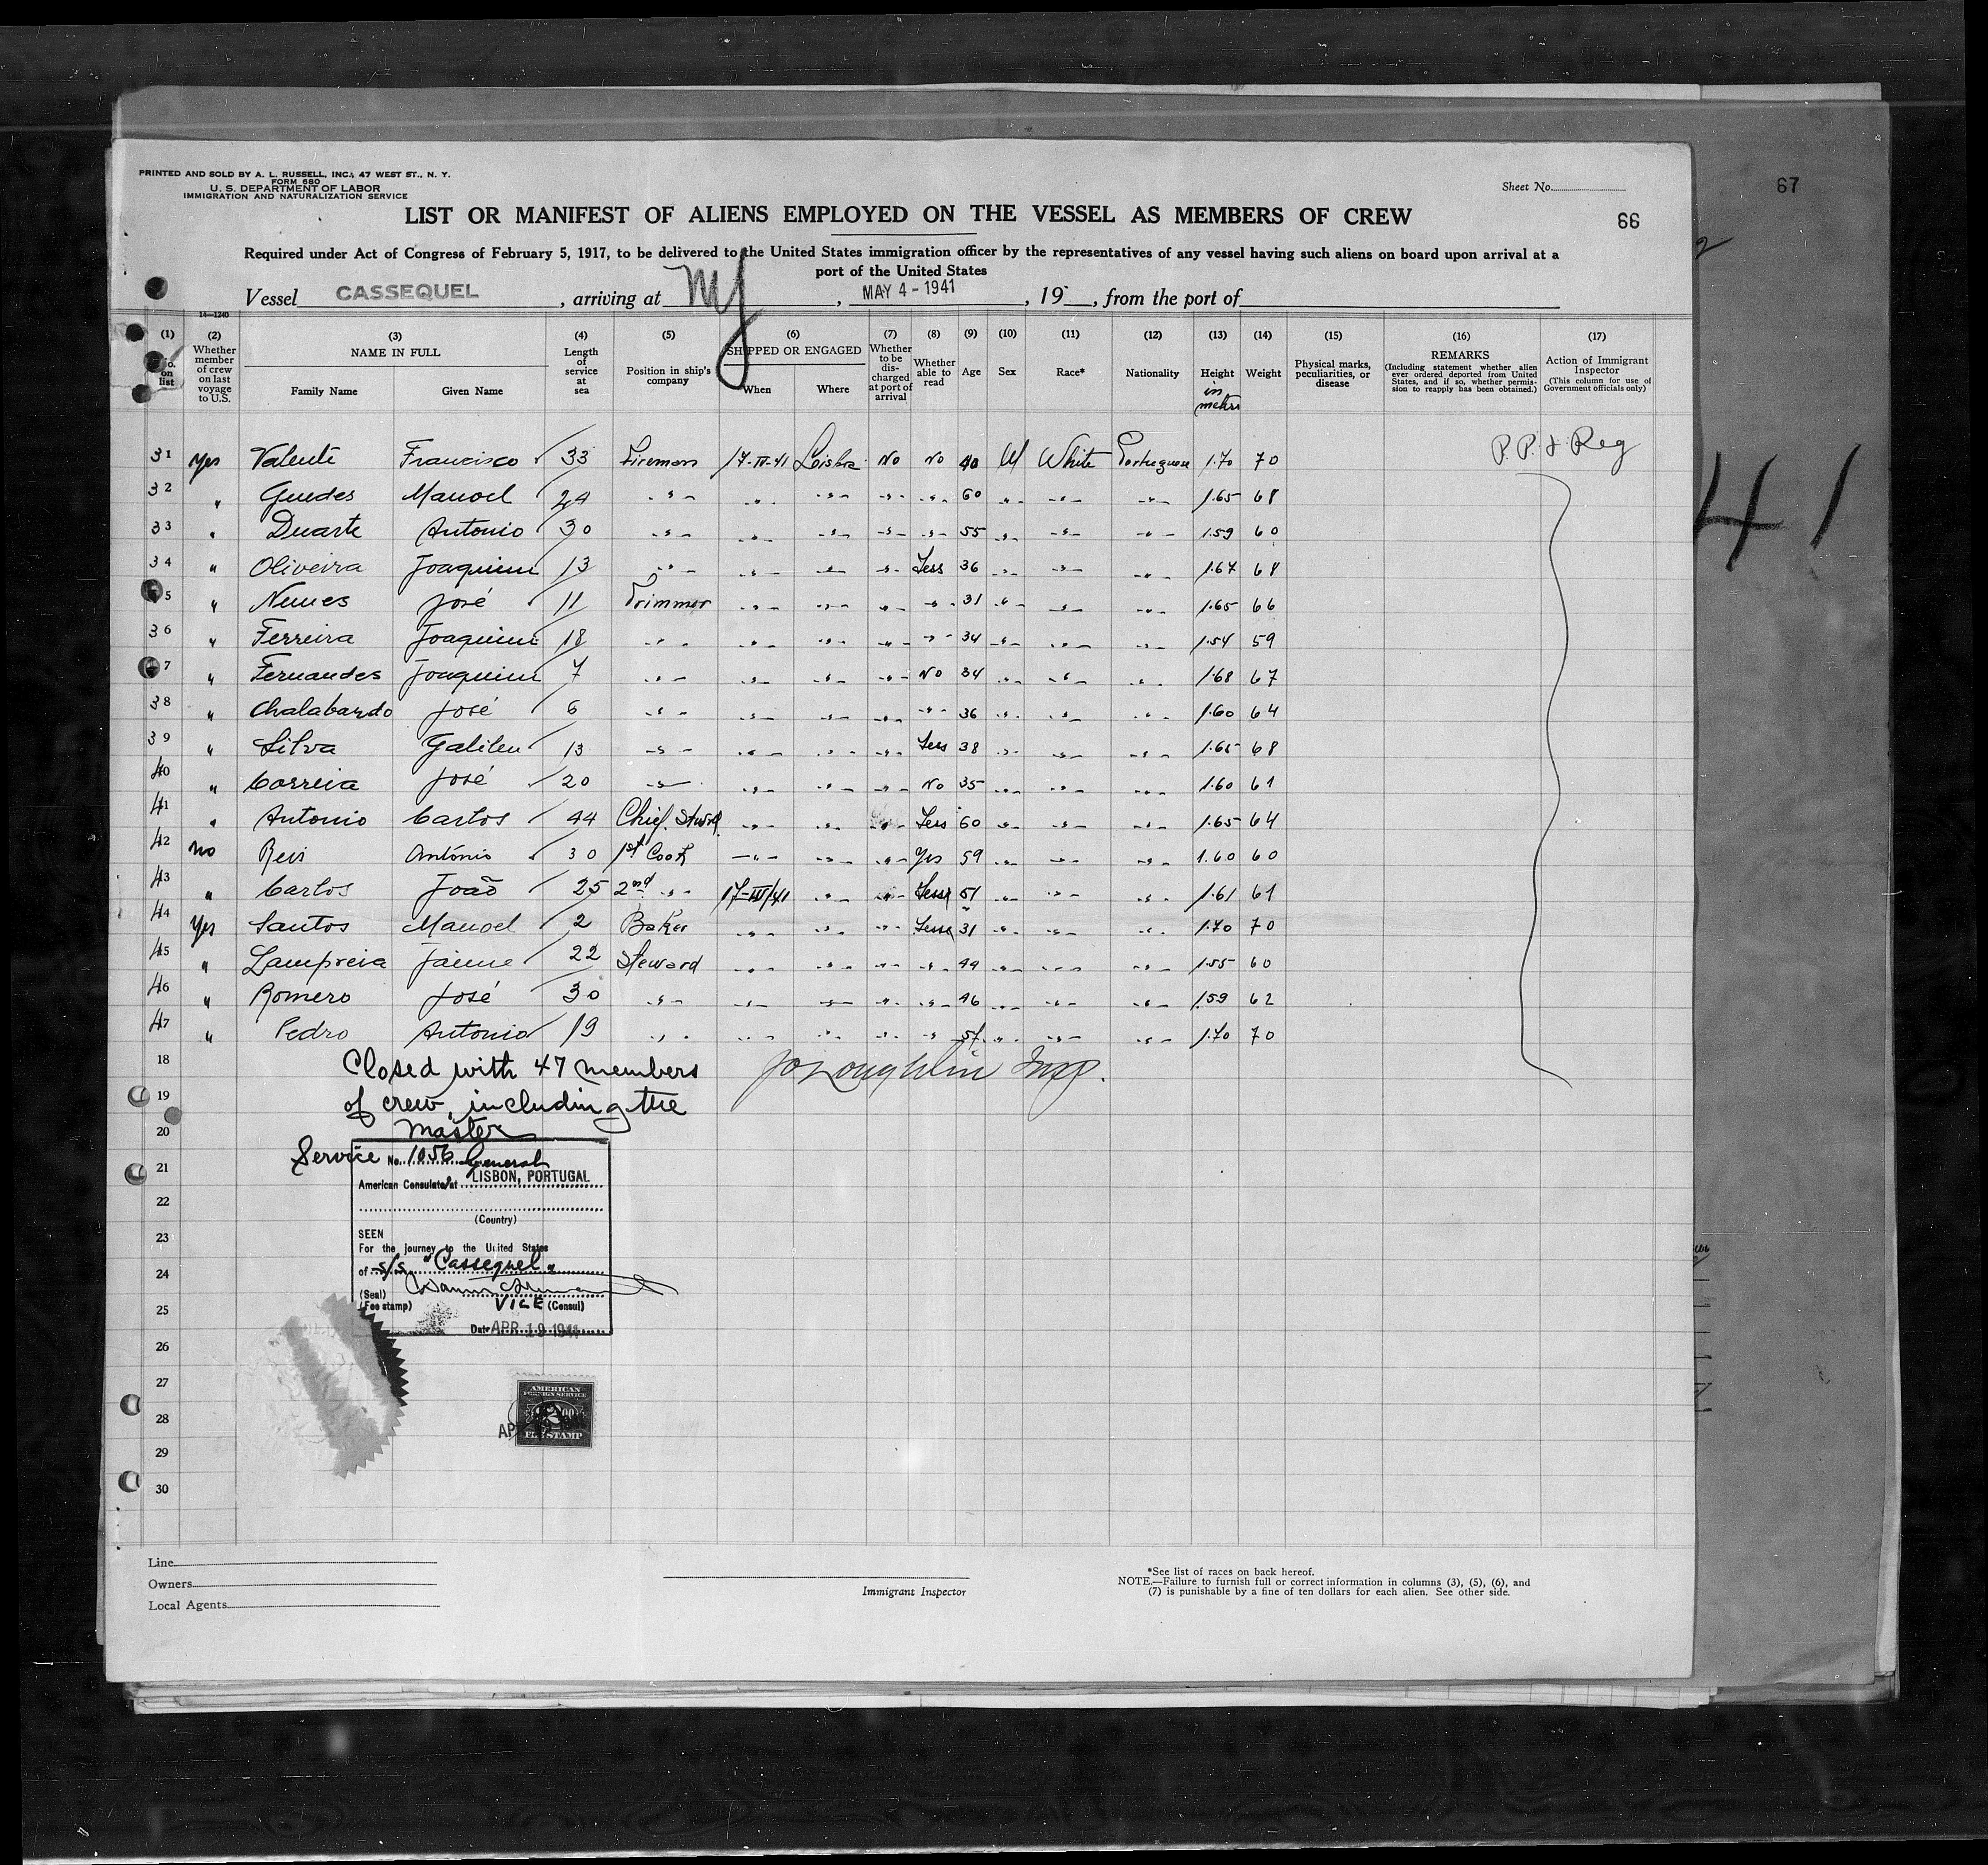 PRINTED AND SOLD BY A. L. RUSSELL, INC., 47 WEST ST., N. Y.
FORM 680
U. S. DEPARTMENT OF LABOR
IMMIGRATION AND NATURALIZATION SERVICE
Sheet No.
67
LIST OR MANIFEST OF ALIENS EMPLOYED ON THE VESSEL AS MEMBERS OF CREW
66
Required under Act of Congress of February 5, 1917, to be delivered to the United States immigration officer by the representatives of any vessel having such aliens on board upon arrival at a
port of the United States
Vessel CASSEQUEL, arriving at NY, MAY 4 - 1941, 19, from the port of
14—1240
(1) (2) (3) (4) (5) (6) (7) (8) (9) (10) (11) (12) (13) (14) (15) (16) (17)
No. on list
Whether member of crew on last voyage to U.S.
NAME IN FULL
Family Name Given Name
Length of service at sea
Position in ship's company
SHIPPED OR ENGAGED
When Where
Whether to be discharged at port of arrival
Whether able to read
Age
Sex
Race*
Nationality
Height in metres
Weight
Physical marks, peculiarities, or disease
REMARKS
(Including statement whether alien ever ordered deported from United States, and if so, whether permission to reapply has been obtained.)
Action of Immigrant Inspector
(This column for use of Government officials only)
31 Yes Valente Francisco 33 Fireman 17-IV-41 Loisboa No No 40 M White Portuguese 1.70 70 P.P. & Reg
32 " Guedes Manoel 24 -"- -"- -"- -"- -"- 60 -"- -"- -"- 1.65 68
33 " Duarte Antonio 30 -"- -"- -"- -"- -"- 55 -"- -"- -"- 1.59 60
34 " Oliveira Joaquim 13 -"- -"- -"- -"- Yess 36 -"- -"- -"- 1.67 68
35 " Nunes José 11 Trimmer -"- -"- -"- -"- 31 -"- -"- -"- 1.65 66
36 " Ferreira Joaquim 18 -"- -"- -"- -"- -"- 34 -"- -"- -"- 1.54 59
37 " Fernandes Joaquim 7 -"- -"- -"- -"- No 34 -"- -"- -"- 1.68 67
38 " Chalabardo José 6 -"- -"- -"- -"- -"- 36 -"- -"- -"- 1.60 64
39 " Silva Galileu 13 -"- -"- -"- -"- Yess 38 -"- -"- -"- 1.65 68
40 " Correia José 20 -"- -"- -"- -"- No 35 -"- -"- -"- 1.60 61
41 " Antonio Carlos 44 Chief. Stwrd -"- -"- -"- Yess 60 -"- -"- -"- 1.65 64
42 no Reis António 30 1st Cook -"- -"- -"- Yes 59 -"- -"- -"- 1.60 60
43 " Carlos João 25 2nd -"- 17-IV/41 -"- -"- Yess 51 -"- -"- -"- 1.61 61
44 Yes Santos Manoel 2 Baker -"- -"- -"- Yess 31 -"- -"- -"- 1.70 70
45 " Lampreia Jaime 22 Steward -"- -"- -"- -"- 44 -"- -"- -"- 1.55 60
46 " Romero José 30 -"- -"- -"- -"- -"- 46 -"- -"- -"- 1.59 62
47 " Pedro Antonio 19 -"- -"- -"- -"- -"- -"- -"- -"- 1.70 70
41
18 Closed with 47 members
JO Loughlin Insp.
19 of crew, including the
20 master
Service No. 1056 General
21
American Consulate at LISBON, PORTUGAL
22
(Country)
23
SEEN
For the journey to the United States
of S/S "Cassequel"
24
(Seal)
(Fee stamp)
VICE (Consul)
25
Date APR 19 1941
26
27
AMERICAN
FOREIGN SERVICE
28
FEE STAMP
29
30
Line
Owners
Local Agents
Immigrant Inspector
*See list of races on back hereof.
NOTE.—Failure to furnish full or correct information in columns (3), (5), (6), and
(7) is punishable by a fine of ten dollars for each alien. See other side.